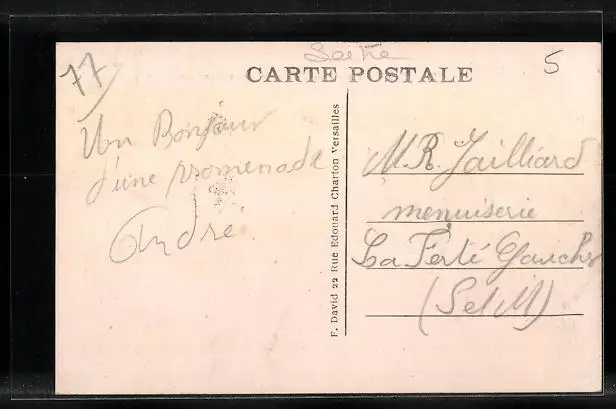 77
5
CARTE POSTALE
Un Bonjour
d'une promenade
André
F. David 22 Rue Edouard Charton Versailles
M.R. Jailliard
menuiserie
La Ferté Gaucher
(S et M)